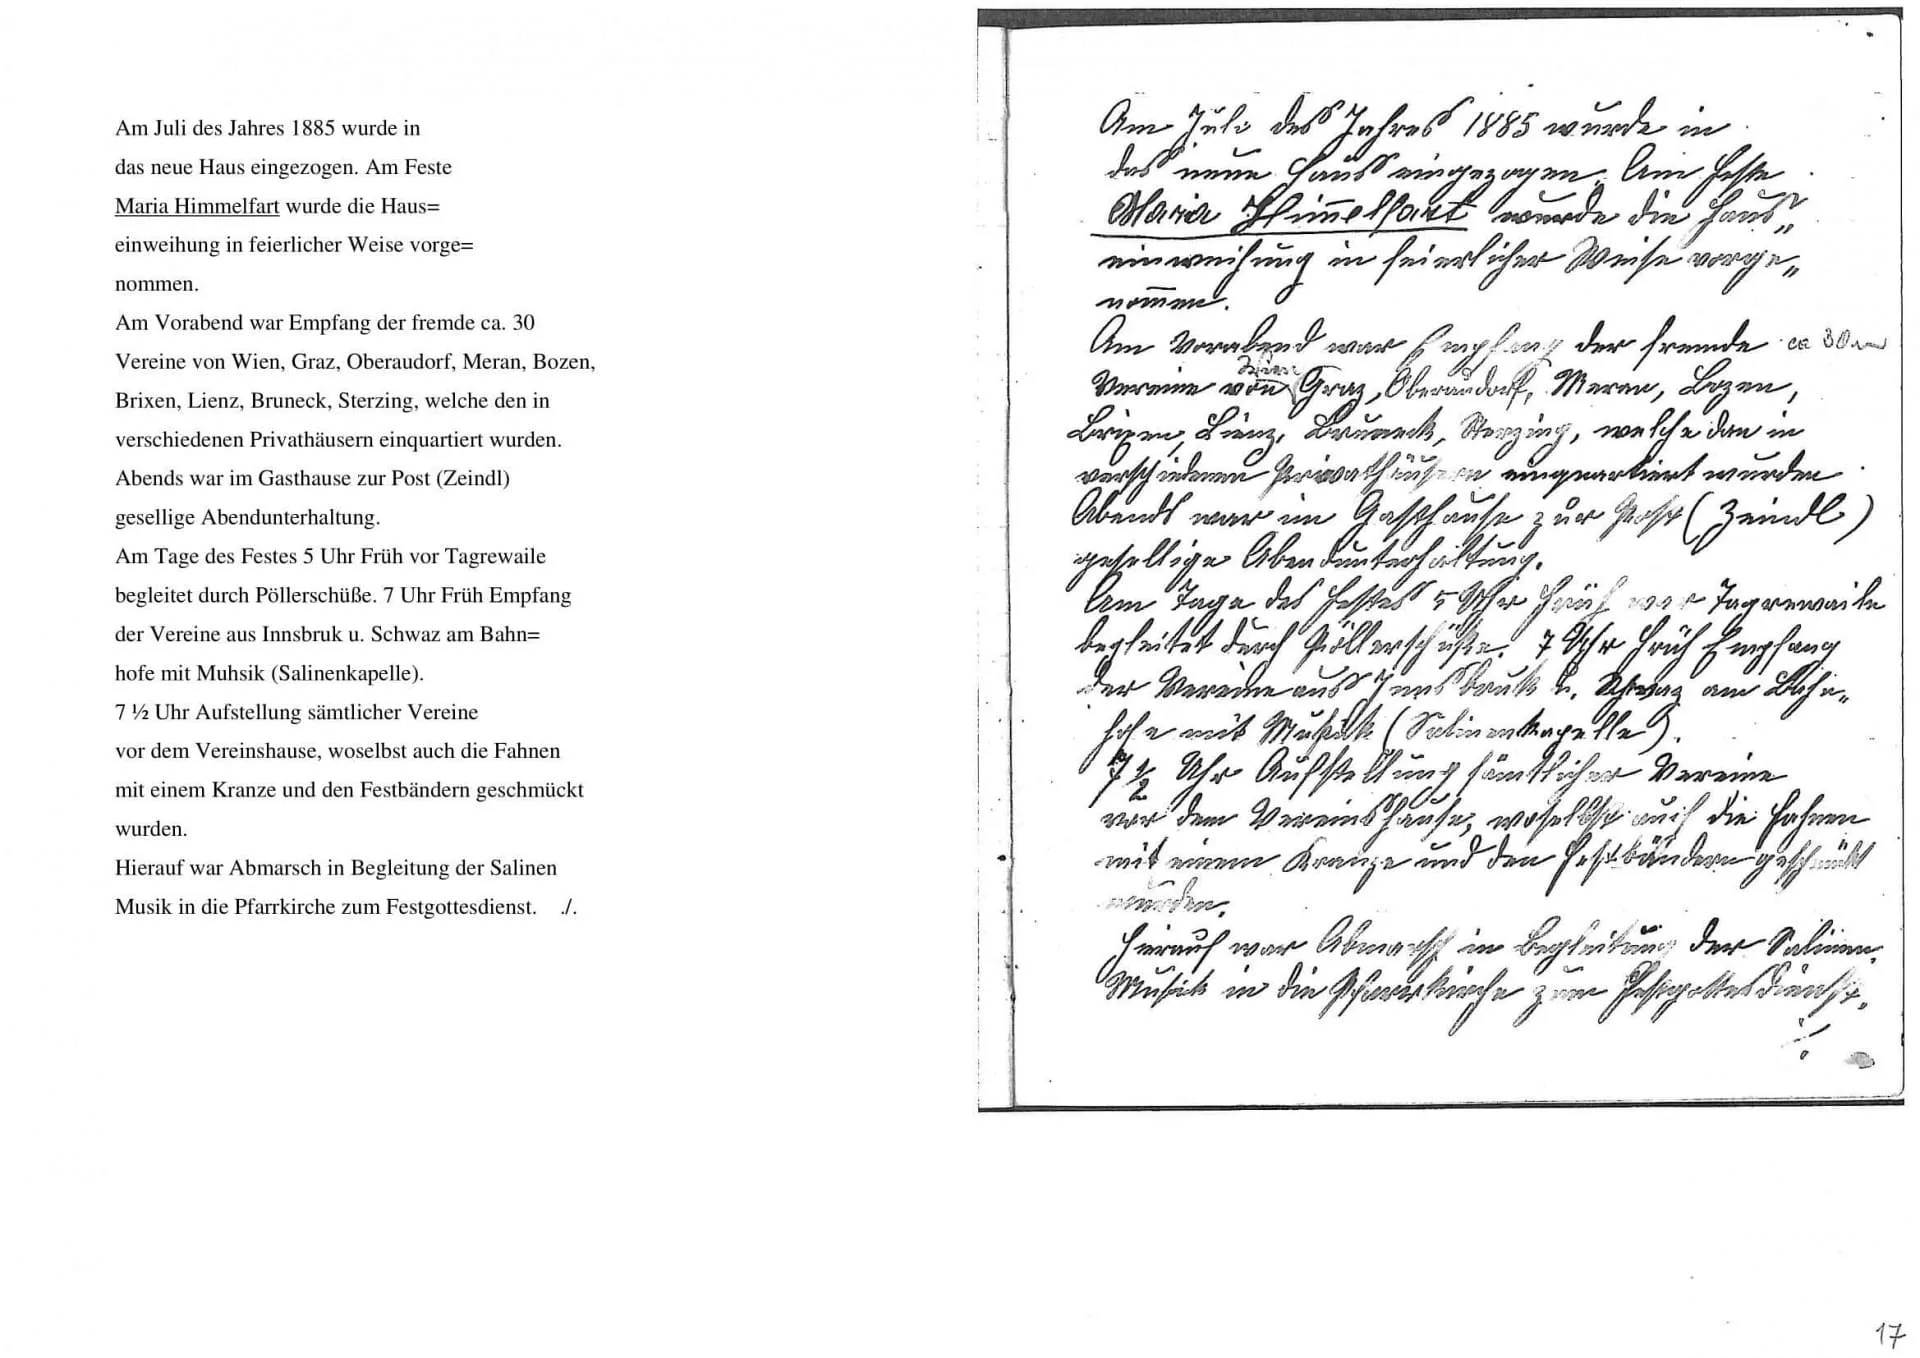 Am Juli des Jahres 1885 wurde in
das neue Haus eingezogen. Am Feste
Maria Himmelfart wurde die Haus=
einweihung in feierlicher Weise vorge=
nommen.
Am Vorabend war Empfang der fremde ca. 30
Vereine von Wien, Graz, Oberaudorf, Meran, Bozen,
Brixen, Lienz, Bruneck, Sterzing, welche den in
verschiedenen Privathäusern einquartiert wurden.
Abends war im Gasthause zur Post (Zeindl)
gesellige Abendunterhaltung.
Am Tage des Festes 5 Uhr Früh vor Tagrewaile
begleitet durch Pöllerschüße. 7 Uhr Früh Empfang
der Vereine aus Innsbruk u. Schwaz am Bahn=
hofe mit Muhsik (Salinenkapelle).
7 ½ Uhr Aufstellung sämtlicher Vereine
vor dem Vereinshause, woselbst auch die Fahnen
mit einem Kranze und den Festbändern geschmückt
wurden.
Hierauf war Abmarsch in Begleitung der Salinen
Musik in die Pfarrkirche zum Festgottesdienst. ./.
Am Juli des Jahres 1885 wurde in
das neue Haus eingezogen. Am Feste
Maria Himmelfart wurde die Haus„
einweihung in feierlicher Weise vorge„
nommen.
Am Vorabend war Empfang der fremde ca 30
Wien
Vereine von Graz, Oberaudorf, Meran, Bozen,
Brixen, Lienz, Bruneck, Sterzing, welche dan in
verschiedenen Privathäusern einquartiert wurden
Abends war im Gasthause zur Post (Zeindl)
gesellige Abendunterhaltung.
Am Tage des Festes 5 Uhr Früh war Tagrewaile
begleitet durch Pöllerschüße. 7 Uhr Früh Empfang
der Vereine aus Innsbruk u. Schwaz am Bahn„
hofe mit Musik (Salinenkapelle).
7 ½ Uhr Aufstellung sämtlicher Vereine
vor dem Vereinshause, woselbst auch die Fahnen
mit einem Kranze und den Festbändern geschmükt
wurden.
Hierauf war Abmarsch in Begleitung der Salinen„
Musik in die Pfarrkirche zum Festgottesdienst.
./.
17